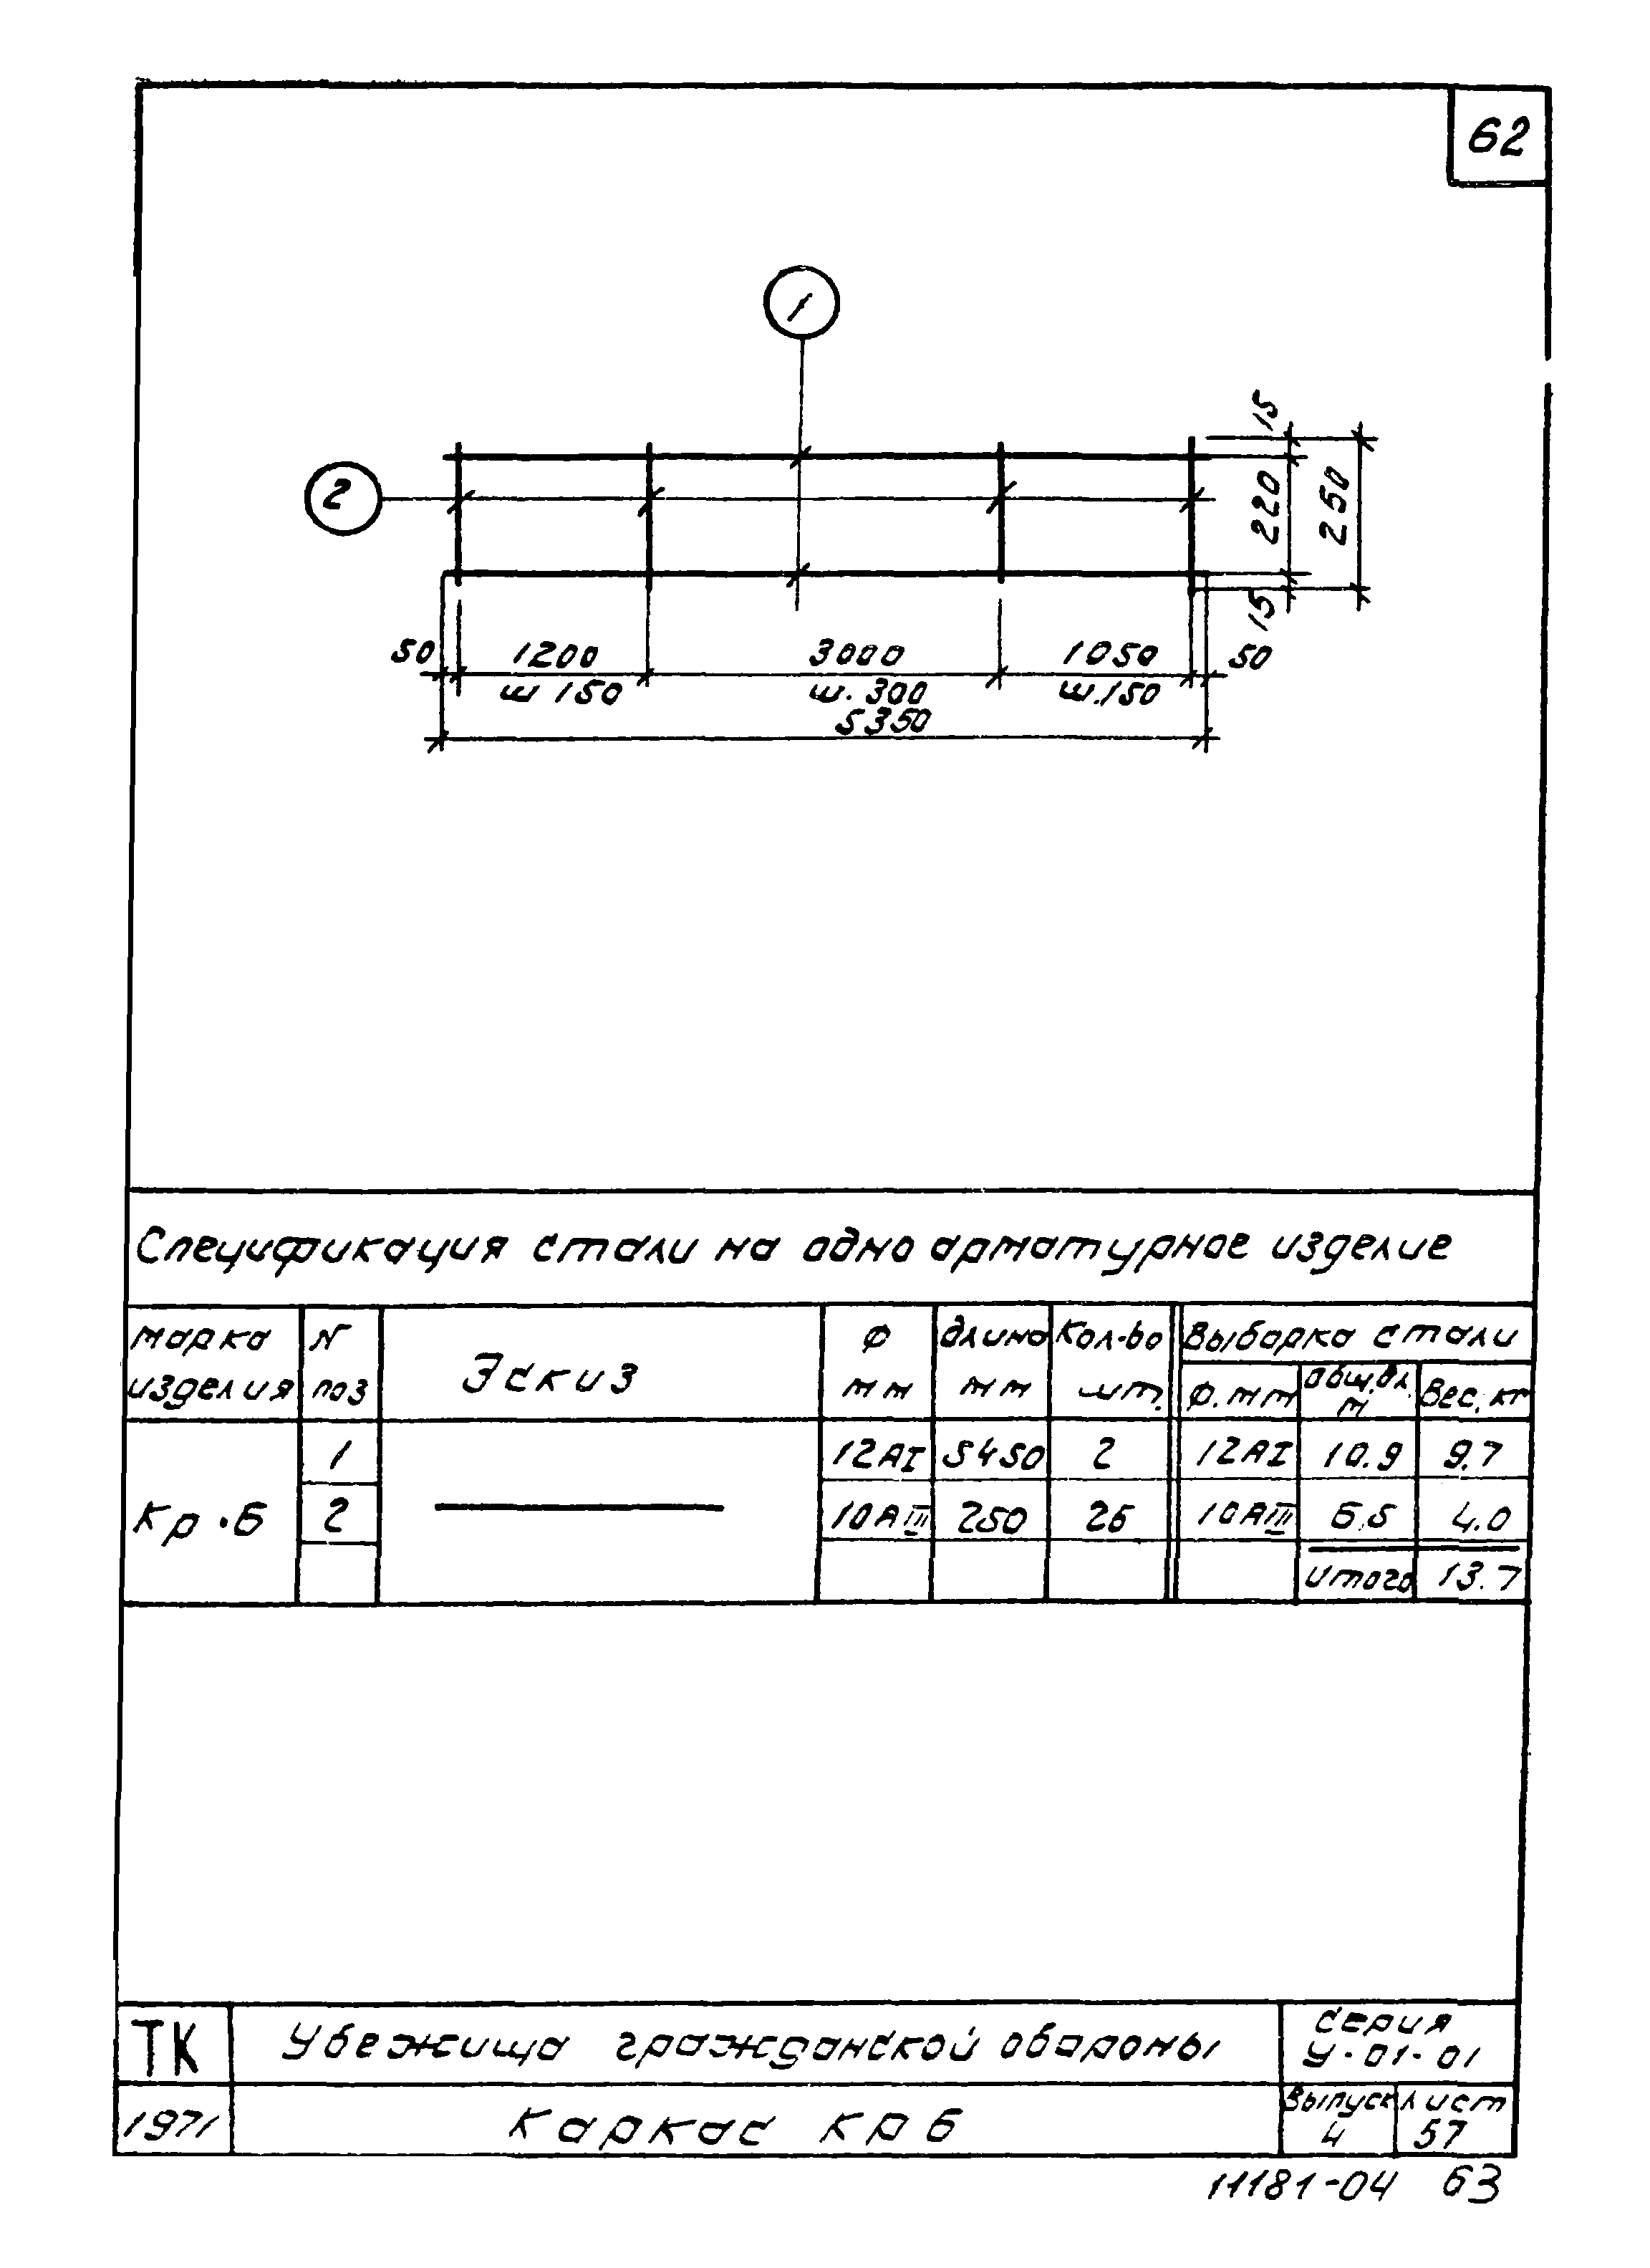 62
1
2
15
220
250
15
50 1200 3000 1050 50
ш 150 ш. 300 ш. 150
5350
Спецификация стали на одно арматурное изделие
марка изделия N поз Эскиз Ф мм длина мм Кол-во шт. Выборка стали
Ф. мм общ. дл. м Вес. кг
Кр·6
1 12АI 5450 2 12АI 10.9 9.7
2 10АIII 250 26 10АIII 6.5 4.0
итого 13.7
ТК Убежища гражданской обороны серия У-01-01
1971 Каркас кр 6 Выпуск 4 лист 57
11181-04 63